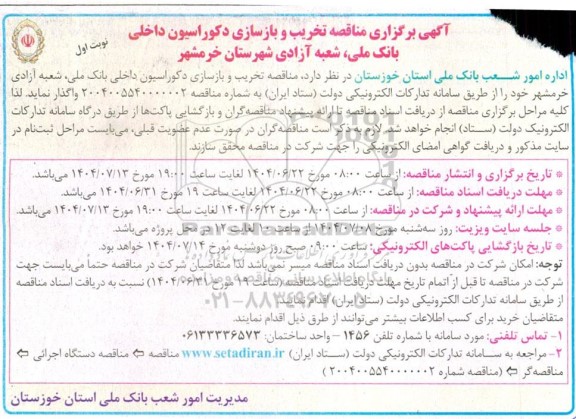 آگهی برگزاری مناقصه تخریب و بازسازی دکوراسیون داخلی
بانک ملی، شعبه آزادی شهرستان خرمشهر
نوبت اول
اداره امور شـــعب بانک ملی استان خوزستان در نظر دارد، مناقصه تخریب و بازسازی دکوراسیون داخلی بانک ملی، شعبه آزادی
خرمشهر خود را از طریق سامانه تدارکات الکترونیکی دولت (ستاد ایران) به شماره مناقصه ۲۰۰۴۰۰۵۵۴۰۰۰۰۰۰۲ واگذار نماید. لذا
کلیه مراحل برگزاری مناقصه از دریافت اسناد مناقصه تا ارائه پیشنهاد مناقصه‌گران و بازگشایی پاکت‌ها از طریق درگاه سامانه تدارکات
الکترونیک دولت (ســتاد) انجام خواهد شد. لازم بذکر است مناقصه‌گران در صورت عدم عضویت قبلی، می‌بایست مراحل ثبت‌نام در
سایت مذکور و دریافت گواهی امضای الکترونیکی را جهت شرکت در مناقصه محقق سازند.
* تاریخ برگزاری و انتشار مناقصه: از ساعت ۰۸:۰۰ مورخ ۱۴۰۴/۰۶/۲۲ لغایت ساعت ۱۹:۰۰ مورخ ۱۴۰۴/۰۷/۱۳ می‌باشد.
* مهلت دریافت اسناد مناقصه: از ساعت ۰۸:۰۰ مورخ ۱۴۰۴/۰۶/۲۲ لغایت ساعت ۱۹ مورخ ۱۴۰۴/۰۶/۳۱ می‌باشد.
* مهلت ارائه پیشنهاد و شرکت در مناقصه: از ساعت ۰۸:۰۰ مورخ ۱۴۰۴/۰۶/۲۲ لغایت ساعت ۱۹:۰۰ مورخ ۱۴۰۴/۰۷/۱۳ می‌باشد.
* جلسه سایت ویزیت: روز سه‌شنبه مورخ ۱۴۰۴/۰۷/۰۸ از ساعت ۱۰ لغایت ۱۲ در محل پروژه می‌باشد.
* تاریخ بازگشایی پاکت‌های الکترونیکی: ساعت ۰۹:۰۰ صبح روز دوشنبه مورخ ۱۴۰۴/۰۷/۱۴ خواهد بود.
توجه: امکان شرکت در مناقصه بدون دریافت اسناد مناقصه میسر نمی‌باشد لذا متقاضیان شرکت در مناقصه حتماً می‌بایست جهت
شرکت در مناقصه تا قبل از اتمام تاریخ مهلت دریافت اسناد مناقصه (ساعت ۱۹ مورخ ۱۴۰۴/۰۶/۳۱) نسبت به دریافت اسناد مناقصه
از طریق سامانه تدارکات الکترونیکی دولت (ستاد ایران) اقدام نمایند.
متقاضیان خرید برای کسب اطلاعات بیشتر می‌توانند از طرق ذیل اقدام نمایند.
۱- تماس تلفنی: مورد سامانه با شماره تلفن ۱۴۵۶ - واحد ساختمان: ۰۶۱۳۳۳۳۶۵۷۳
۲- مراجعه به ســامانه تدارکات الکترونیکی دولت (ســـتاد ایران) www.setadiran.ir مناقصه ⇦ مناقصه دستگاه اجرائی ⇦
مناقصه‌گر ⇦ (مناقصه شماره ۲۰۰۴۰۰۵۵۴۰۰۰۰۰۰۲)
مدیریت امور شعب بانک ملی استان خوزستان
۰۲۱-۸۸۳۴۹۶۷۰-۵